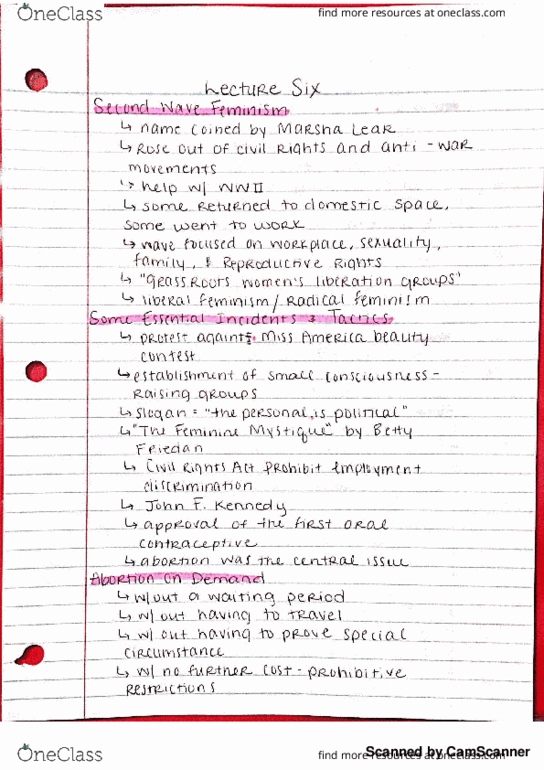 OneClass
find more resources at oneclass.com
Lecture Six
Second Wave Feminism
↳ name coined by Marsha Lear
↳ Rose out of civil Rights and anti-war
movements
↳ help w/ WWII
↳ some Returned to domestic space,
some went to work
↳ wave focused on workplace, sexuality,
family, & Reproductive Rights
↳ "grassroots women's liberation groups"
↳ liberal feminism/Radical feminism
Some Essential Incidents & Tactics
↳ protest against Miss America beauty
contest
↳ establishment of small consciousness-
raising groups
↳ slogan = "the personal is political"
↳ "The Feminine Mystique" by Betty
Friedan
↳ Civil Rights Act Prohibit Employment
discrimination
↳ John F. Kennedy
↳ approval of the first oral
contraceptive
↳ abortion was the central issue
Abortion On Demand
↳ w/out a waiting period
↳ w/out having to travel
↳ w/out having to prove special
circumstance
↳ w/ no further cost-prohibitive
Restrictions
OneClass
find more resources at oneclass.com
Scanned by CamScanner